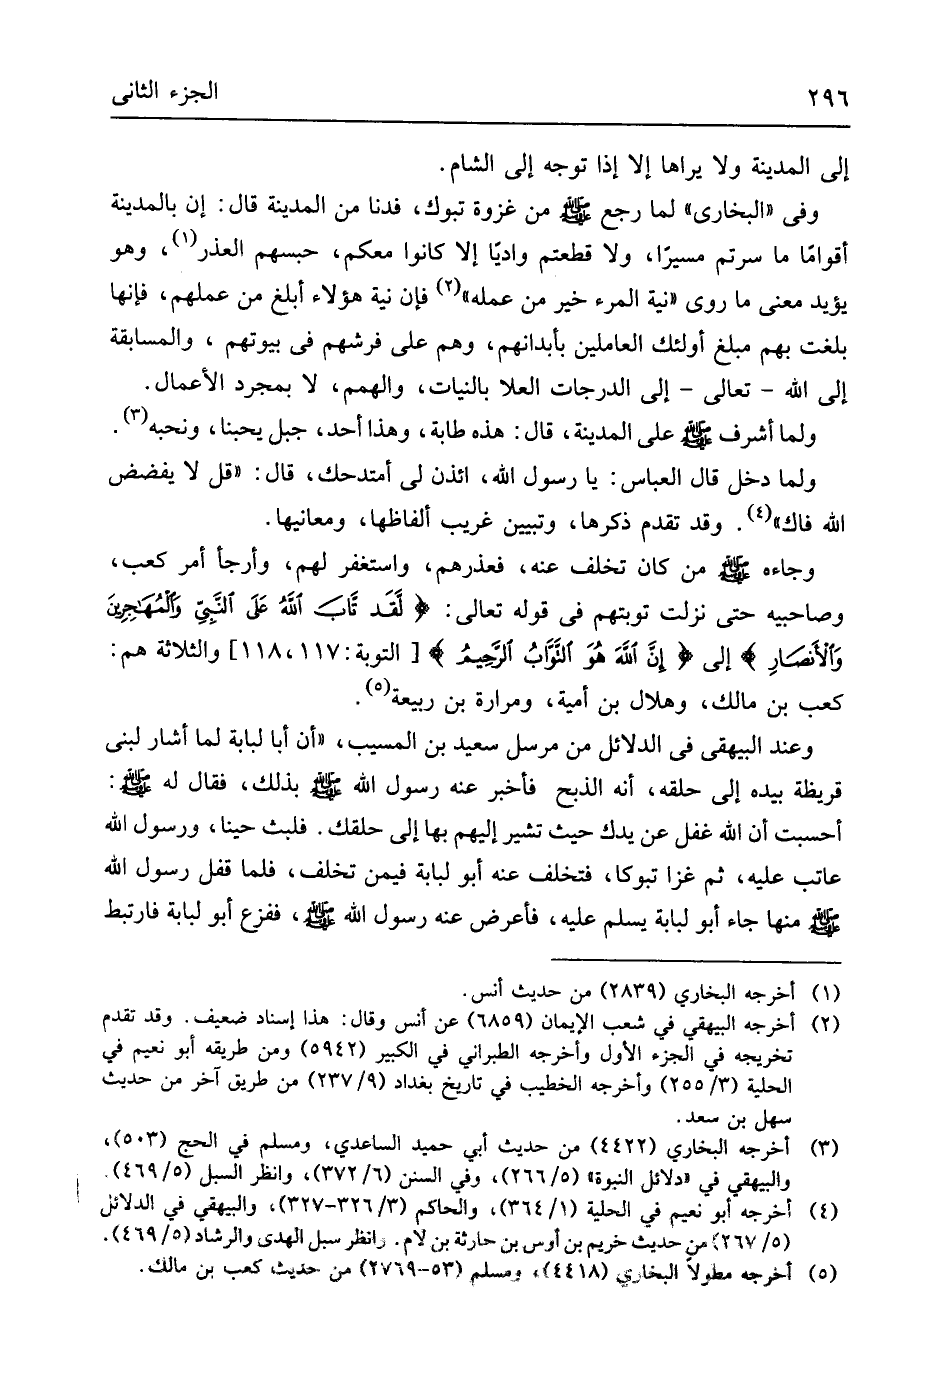 ٢٩٦ الجزء الثانى
إلى المدينة ولا يراها إلا إذا توجه إلى الشام.
وفى «البخارى» لما رجع ﷺ من غزوة تبوك، فدنا من المدينة قال: إن بالمدينة
أقوامًا ما سرتم مسيرًا، ولا قطعتم واديًا إلا كانوا معكم، حبسهم العذر(١)، وهو
يؤيد معنى ما روى «نية المرء خير من عمله»(٢) فإن نية هؤلاء أبلغ من عملهم، فإنها
بلغت بهم مبلغ أولئك العاملين بأبدانهم، وهم على فرشهم فى بيوتهم ، والمسابقة
إلى الله - تعالى - إلى الدرجات العلا بالنيات، والهمم، لا بمجرد الأعمال.
ولما أشرف ﷺ على المدينة، قال: هذه طابة، وهذا أحد، جبل يحبنا، ونحبه(٣).
ولما دخل قال العباس: يا رسول الله، ائذن لى أمتدحك، قال: «قل لا يفضض
الله فاك»(٤). وقد تقدم ذكرها، وتبيين غريب ألفاظها، ومعانيها.
وجاءه ﷺ من كان تخلف عنه، فعذرهم، واستغفر لهم، وأرجأ أمر كعب،
وصاحبيه حتى نزلت توبتهم فى قوله تعالى: ﴿ لَّقَد تَّابَ ٱللَّهُ عَلَى ٱلنَّبِيِّ وَٱلْمُهَٰجِرِينَ
وَٱلْأَنصَارِ ﴾ إلى ﴿ إِنَّ ٱللَّهَ هُوَ ٱلتَّوَّابُ ٱلرَّحِيمُ ﴾ [ التوبة: ١١٧، ١١٨] والثلاثة هم:
كعب بن مالك، وهلال بن أمية، ومرارة بن ربيعة(٥).
وعند البيهقى فى الدلائل من مرسل سعيد بن المسيب، «أن أبا لبابة لما أشار لبنى
قريظة بيده إلى حلقه، أنه الذبح فأخبر عنه رسول الله ﷺ بذلك، فقال له ﷺ:
أحسبت أن الله غفل عن يدك حيث تشير إليهم بها إلى حلقك. فلبث حينا، ورسول الله
عاتب عليه، ثم غزا تبوكا، فتخلف عنه أبو لبابة فيمن تخلف، فلما قفل رسول الله
ﷺ منها جاء أبو لبابة يسلم عليه، فأعرض عنه رسول الله ﷺ، ففزع أبو لبابة فارتبط
(١) أخرجه البخاري (٢٨٣٩) من حديث أنس.
(٢) أخرجه البيهقي في شعب الإيمان (٦٨٥٩) عن أنس وقال: هذا إسناد ضعيف. وقد تقدم
تخريجه في الجزء الأول وأخرجه الطبراني في الكبير (٥٩٤٢) ومن طريقه أبو نعيم في
الحلية (٣/ ٢٥٥) وأخرجه الخطيب في تاريخ بغداد (٩/ ٢٣٧) من طريق آخر من حديث
سهل بن سعد.
(٣) أخرجه البخاري (٤٤٢٢) من حديث أبي حميد الساعدي، ومسلم في الحج (٥٠٣)،
والبيهقي في «دلائل النبوة» (٥/ ٢٦٦)، وفي السنن (٦/ ٣٧٢)، وانظر السبل (٥/ ٤٦٩).
(٤) أخرجه أبو نعيم في الحلية (١/ ٣٦٤)، والحاكم (٣/ ٣٢٦-٣٢٧)، والبيهقي في الدلائل
(٥/ ٢٦٧) من حديث خريم بن أوس بن حارثة بن لام. وانظر سبل الهدى والرشاد (٥/ ٤٦٩).
(٥) أخرجه مطولاً البخاري (٤٤١٨)، ومسلم (٥٣-٢٧٦٩) من حديث كعب بن مالك.